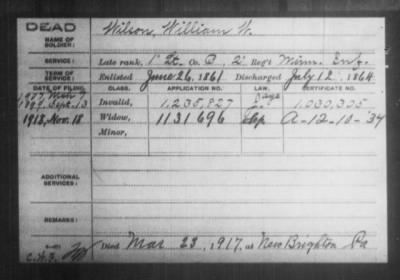 DEAD
NAME OF SOLDIER: Wilson, William W.
SERVICE: Late rank, 1" Lt. Co. D, 2" Reg't Minn. Inf.
TERM OF SERVICE: Enlisted June 26, 1861 Discharged July 12, 1864
DATE OF FILING. CLASS. APPLICATION NO. LAW. CERTIFICATE NO.
1907
1897 Sept. 13 Invalid, 1,235,827 1,030,305
1918, Nov. 18 Widow, 1131696 A-12-10-34
Minor,
ADDITIONAL SERVICES:
REMARKS:
Died Mar 23, 1917, at New Brighton Pa